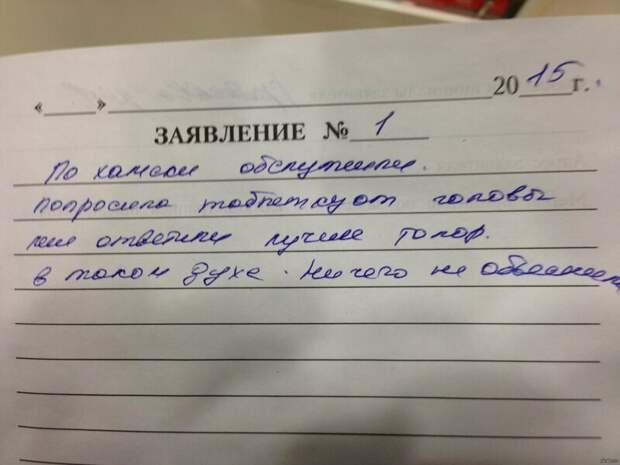 «____»____________20 15 г.
ЗАЯВЛЕНИЕ № 1
По хамски обслужили.
попросила таблетку от головы
мне ответили лучше топор.
в таком духе. Ничего не объяснили